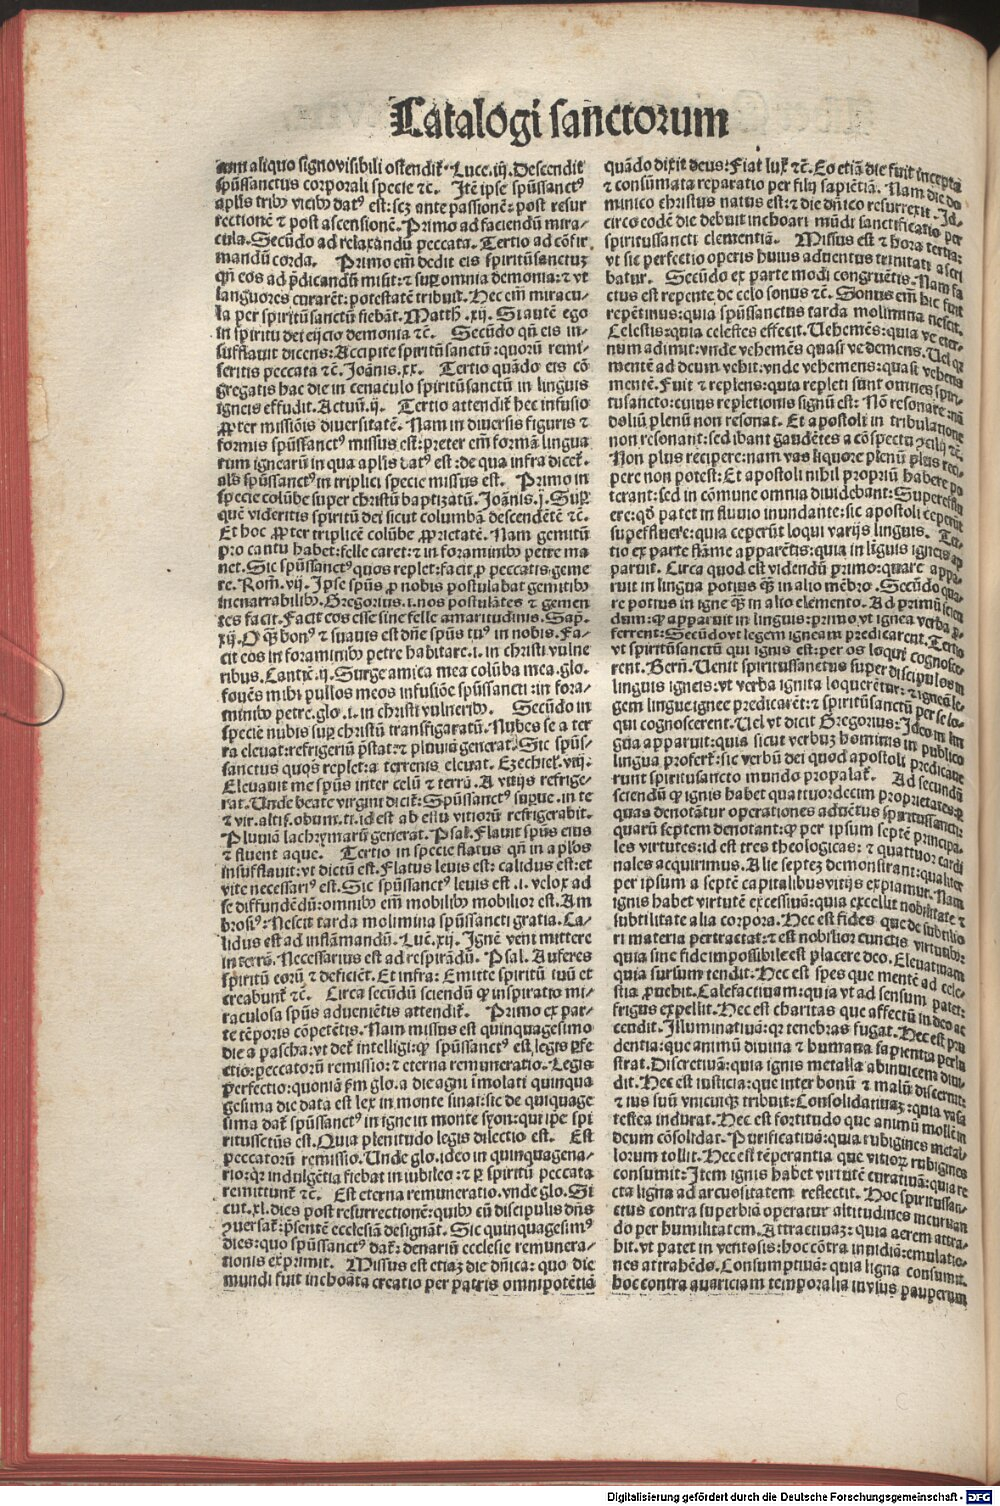 Catalogi sanctorum
aliquo signo visibili ostendit̄. Luce.iij. Descendit
spūssanctus corporali specie ⁊c. Itē ipse spūssanct⁹
aplīs trib⁹ vicib⁹ dat⁹ est: scz ante passionē: post resur
rectionē ⁊ post ascensionē. Primo ad faciendū mira⸗
cula. Secūdo ad relaxandū peccata. Tertio ad cōfir⸗
mandū corda. Primo em̄ dedit eis spiritūsanctuz
qn̄ eos ad p̄dicandū misit: ⁊ suꝑ omnia demonia: ⁊ vt
languores curarēt: potestatē tribuit. Hec em̄ miracu⸗
la per spiritūsanctū fiebāt. Matth̄.xij. Si autē ego
in spiritu dei eijcio demonia ⁊c. Secūdo qn̄ eis in⸗
sufflauit dicens: Accipite spiritūsanctū: quorū remi⸗
seritis peccata ⁊c. Joānis.xx. Tertio quādo eis cō
gregatis hac die in cenaculo spiritūsanctū in linguis
igneis effudit. Actuū.ij. Tertio attendit̄ hec infusio
ꝓpter missiōis diuersitatē. Nam in diuersis figuris ⁊
formis spūssanct⁹ missus est: preter em̄ formā lingua
rum ignearū in qua aplīs dat⁹ est: de qua infra dicet̄.
alīs spūssanct⁹ in triplici specie missus est. Primo in
specie colūbe super christū baptizatū. Joānis.j. Suꝑ
quē videritis spiritū dei sicut columbā descendētē ⁊c.
Et hoc ꝓpter triplicē colūbe ꝓprietatē. Nam gemitū
pro cantu habet: felle caret: ⁊ in foraminib⁹ petre ma
net. Sic spūssanct⁹ quos replet: facit ꝓ peccatis geme
re. Rom̄.vij. Ipse spūs ꝓ nobis postulabat gemitib⁹
inenarrabilib⁹. Gregorius.i. nos postulātes ⁊ gemen
tes facit. Facit eos esse sine felle amaritudinis. Sap̄.
xij. O q̄ꝫ bon⁹ ⁊ suauis est dn̄e spūs tu⁹ in nobis. Fa⸗
cit eos in foraminib⁹ petre habitare.i. in christi vulne
ribus. Cantic̄.ij. Surge amica mea colūba mea. glo.
fouēs mihi pullos meos infusiōe spūssancti: in fora⸗
minib⁹ petre. glo.i. in christi vulnerib⁹. Secūdo in
specie nubis suꝑ christū transfiguratū. Nubes se a ter
ra eleuat: refrigeriū p̄stat: ⁊ pluuiā generat. Sic spūs⸗
sanctus quos replet: a terrenis eleuat. Ezechiel̄.viij.
Eleuauit me spūs inter celū ⁊ terrā. A vitijs refrige⸗
rat. Unde beate virgini dicit̄: Spūssanct⁹ suꝑue. in te
⁊ vir. altis. obum. ti. id est ab estu vitiorū refrigerabit.
Pluuiā lachrymarū generat. Psal. Flauit spūs eius
⁊ fluent aque. Tertio in specie flatus qn̄ in aplōs
insufflauit: vt dictū est. Flatus leuis est: calidus est: et
vite necessari⁹ est. Sic spūssanct⁹ leuis est.i. velox ad
se diffundēdū: omnib⁹ em̄ mobilib⁹ mobilior est. Am
brosi⁹: Nescit tarda molimina spūssancti gratia. Ca⸗
lidus est ad inflāmandū. Luc̄.xij. Ignē veni mittere
in terrā. Necessarius est ad respirādū. Psal. Auferes
spiritū eorū ⁊ deficiēt. Et infra: Emitte spiritū tuū et
creabunt̄ ⁊c. Circa secūdū sciendū ꝙ inspiratio mi⸗
raculosa spūs aduenietis attendit̄. Primo ex par⸗
te tēporis cōpetētis. Nam missus est quinquagesimo
die a pascha: vt det̄ intelligi: ꝙ spūssanct⁹ est legis ꝑfe
ctio: peccatorū remissio: ⁊ eterna remuneratio. Legis
perfectio: quoniā ſm glo. a die agni īmolati quinqua
gesima die data est lex in monte sinai: sic de quiquage
sima dat̄ spūssanct⁹ in igne in monte syon: qui ipe spi
ritussctūs est. Quia plenitudo legis dilectio est. Est
peccatorū remissio. Unde glo. ideo in quinquagena⸗
rio: qꝛ indulgētia fiebat in iubileo: ⁊ ꝑ spiritū peccata
remittunt̄ ⁊c. Est eterna remuneratio. vnde glo. Si
cut.xl. dies post resurrectionē: quib⁹ cū discipulis dn̄s
ꝯuersat̄: p̄sentē ecclesiā designāt. Sic quinquagesim⁹
dies: quo spūssanct⁹ dat̄: denariū ecclesie remunera⸗
tionis exprimit. Missus est etiaz die dn̄ica: quo die
mundi fuit inchoata creatio per patris omnipotētiā
quādo dixit deus: Fiat lux ⁊c. Eo etiā die fuit incepta
⁊ consūmata reparatio per filij sapiētiā. Nam die do
minico christus natus est: ⁊ die dn̄ico resurrexit. Id⸗
circo eodē die debuit inchoari mūdi sanctificatio per
spiritussancti clementiā. Missus est ⁊ hora tertia:
vt sic perfectio operis huius aduentus trinitati ascri
batur. Secūdo ex parte modi congruētis. Nam fa
ctus est repente de celo sonus ⁊c. Sonus em̄ hic fuit
repētinus: quia spūssanctus tarda molimina nescit.
Celestis: quia celestes effecit. Uehemēs: quia ve eter⸗
num adimit: vnde vehemēs quasi ve demens. Uel qꝛ
mentē ad deum vehit: vnde vehemens: quasi vehens
mentē. Fuit ⁊ replens: quia repleti sunt omnes spiri⸗
tusancto: cuius repletionis signū est: Nō resonare: nā
doliū plenū non resonat. Et apostoli in tribulatione
non resonant: sed ibant gaudētes a cōspectu ꝯcilij ⁊c.
Non plus recipere: nam vas liquore plenū plus reci
pere non potest: Et apostoli nihil propriū habere po
terant: sed in cōmune omnia diuidebant: Supereflu
ere: qd̄ patet in fluuio inundante: sic apostoli ceperūt
supeffluere: quia ceperūt loqui varijs linguis. Ter⸗
tio ex parte flāme apparētis: quia in līguis igneis ap
paruit. Circa quod est videndū primo: quare appa⸗
ruit in lingua potius q̄ꝫ in alio mēbro. Secūdo qua⸗
re potius in igne q̄ꝫ in alio elemento. Ad primū scien
dum: ꝙ apparuit in linguis: primo vt ignea verba ꝓ⸗
ferrent: Secūdo vt legem igneam predicarent. Tertio
vt spiritūsanctū qui ignis est: per os loqui cognosce⸗
rent. Bern̄. Uenit spiritussanctus super discipulos in
linguis igneis: vt verba ignita loquerētur: ⁊ igneā le⸗
gem lingue ignee predicarēt: ⁊ spiritūsanctū per se lo⸗
qui cognoscerent. Uel vt dicit Gregorius: Ideo in lin
gua apparuit: quia sicut verbuz hominis in publico
lingua profert̄: sic verbū dei quod apostoli predicaue
runt spiritusancto mundo propalat̄. Ad secundū
sciendū ꝙ ignis habet quattuordecim proprietates: ꝑ
quas denotātur operationes aduētus spiritussancti:
quarū septem denotant: ꝙ per ipsum septē principa⸗
les virtutes: id est tres theologicas: ⁊ quattuor cardi
nales acquirimus. Alie septez demonstrant: qualiter
per ipsum a septē capitalibus vitijs expiamur. Nam
ignis habet virtutē excessiuā: quia excellit nobilitate ⁊
subtilitate alia corpora. Hec est fides que de subtilio
ri materia pertractat: ⁊ est nobilior cunctis virtutibꝰ:
quia sine fide impossibile est placere deo. Eleuatiuam
quia sursum tendit. Hec est spes que mentē ad cele⸗
stia ꝓuehit. Calefactiuam: quia vt ad sensum patet:
frigus expellit. Hec est charitas que affectū in deo ac
cendit. Illuminatiuā: qꝛ tenebras fugat. Hec est pru
dentia: que animū diuina ⁊ humana sapientia perlu
strat. Discretiuā: quia ignis metalla abinuicem diui⸗
dit. Hec est iusticia: que inter bonū ⁊ malū discernit:
⁊ ius suū vnicuiqꝫ tribuit: Consolidatiuaz: quia vasa
testea indurat. Hec est fortitudo que animū mollē in
deum cōsolidat. Purificatiuā: quia rubigines metal⸗
lorum tollit. Hec est tēperantia que vitioꝝ rubigines
consumit: Item ignis habet virtutē curuatiuā: quia re
cta ligna ad arcuositatem reflectit. Hoc spiritussan⸗
ctus contra superbiā operatur altitudines incuruan
do per humilitatem. Attractiuaz: quia aerem attra⸗
hit. vt patet in ventosis: hoc cōtra inuidiā: emulatio⸗
nes attrahēdo. Consumptiuā: quia ligna consumit.
hoc contra auariciam temporalia in vsus pauperum
Digitalisierung gefördert durch die Deutsche Forschungsgemeinschaft - DFG